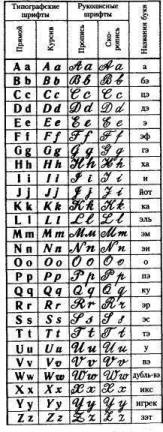 Типографские шрифты Рукописные шрифты Названия букв
Прямой Курсив Пропись Скоропись
A a A a A a A a а
B b B b B b B b бэ
C c C c C c C c цэ
D d D d D d D d дэ
E e E e E e E e е
F f F f F f F f эф
G g G g G g G g гэ
H h H h H h H h ха
I i I i I i I i и
J j J j J j J j йот
K k K k K k K k ка
L l L l L l L l эль
M m M m M m M m эм
N n N n N n N n эн
O o O o O o O o о
P p P p P p P p пэ
Q q Q q Q q Q q ку
R r R r R r R r эр
S s S s S s S s эс
T t T t T t T t тэ
U u U u U u U u у
V v V v V v V v вэ
W w W w W w W w дубль-вэ
X x X x X x X x икс
Y y Y y Y y Y y игрек
Z z Z z Z z Z z зэт